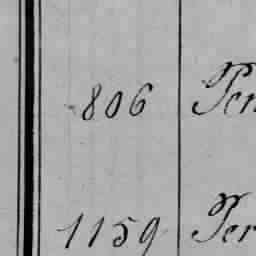 806 Per
1159 Per